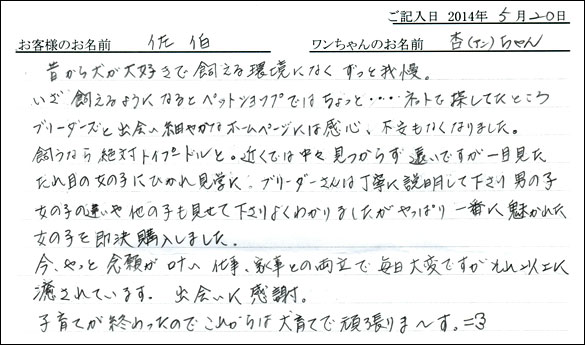 ご記入日 2014年 5月20日
お客様のお名前 佐伯 ワンちゃんのお名前 杏(アン)ちゃん
昔から犬が大好きで飼える環境になくずっと我慢。
いざ飼えるようになるとペットショップではちょっと・・・・ネットで探してたところ
ブリーダーズと出会い細やかなホームページには感心、不安もなくなりました。
飼うなら絶対トイプードルと。近くでは中々見つからず遠いですが一目見た
たれ目の女の子にひかれ見学に。ブリーダーさんは丁寧に説明して下さり男の子
女の子の違いや他の子も見せて下さりよくわかりましたがやっぱり一番に魅かれた
女の子を即決購入しました。
今、やっと念願が叶い仕事、家事との両立で毎日大変ですがそれ以上に
癒されています。出会いに感謝。
子育てが終わったのでこれからは犬育てで頑張りま〜す。=3